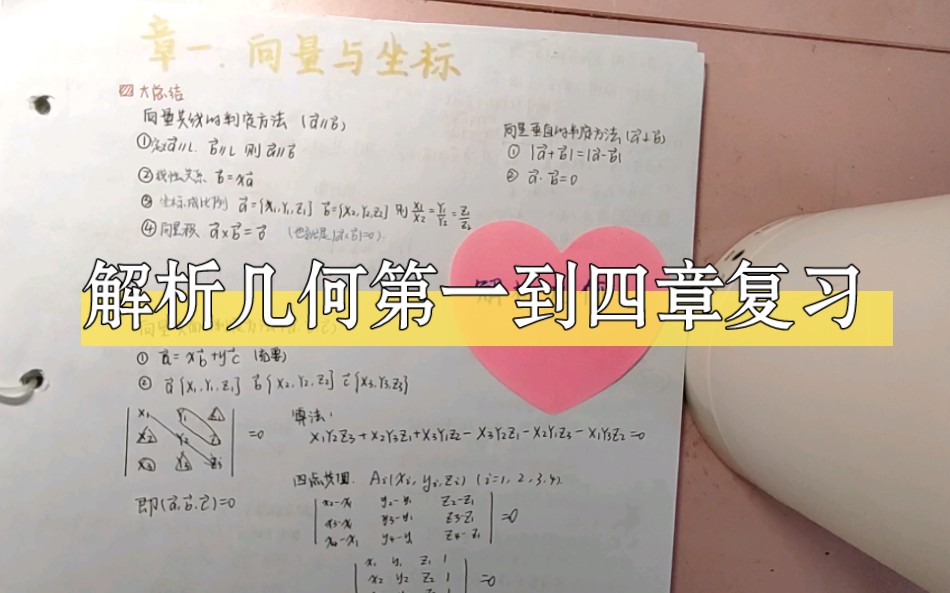 章一.向量与坐标
大总结
向量共线的判定方法 (a⃗∥b⃗)
② 线性关系 b⃗=xa⃗
③ 坐标成比例 a⃗={X₁,Y₁,Z₁} b⃗={X₂,Y₂,Z₂} 则 X₁/X₂=Y₁/Y₂=Z₁/Z₂
④ 向量积 a⃗×b⃗=0⃗ (也就是|a⃗×b⃗|=0).
向量垂直的判定方法 (a⃗⊥b⃗)
① |a⃗+b⃗|=|a⃗-b⃗|
② a⃗·b⃗=0
解析几何第一到四章复习
① a⃗=xb⃗+yc⃗ (充要)
② a⃗{X₁,Y₁,Z₁} b⃗{X₂,Y₂,Z₂} c⃗{X₃,Y₃,Z₃}
X₁ Y₁ Z₁
X₂ Y₂ Z₂ =0
X₃ Y₃ Z₃
算法:
X₁Y₂Z₃+X₂Y₃Z₁+X₃Y₁Z₂-X₃Y₂Z₁-X₂Y₁Z₃-X₁Y₃Z₂=0
即(a⃗,b⃗,c⃗)=0
四点共面. Aᵢ(xᵢ,yᵢ,zᵢ) (i=1,2,3,4).
x₂-x₁ y₂-y₁ z₂-z₁
x₃-x₁ y₃-y₁ z₃-z₁ =0
x₄-x₁ y₄-y₁ z₄-z₁
x₁ y₁ z₁ 1
x₂ y₂ z₂ 1 =0